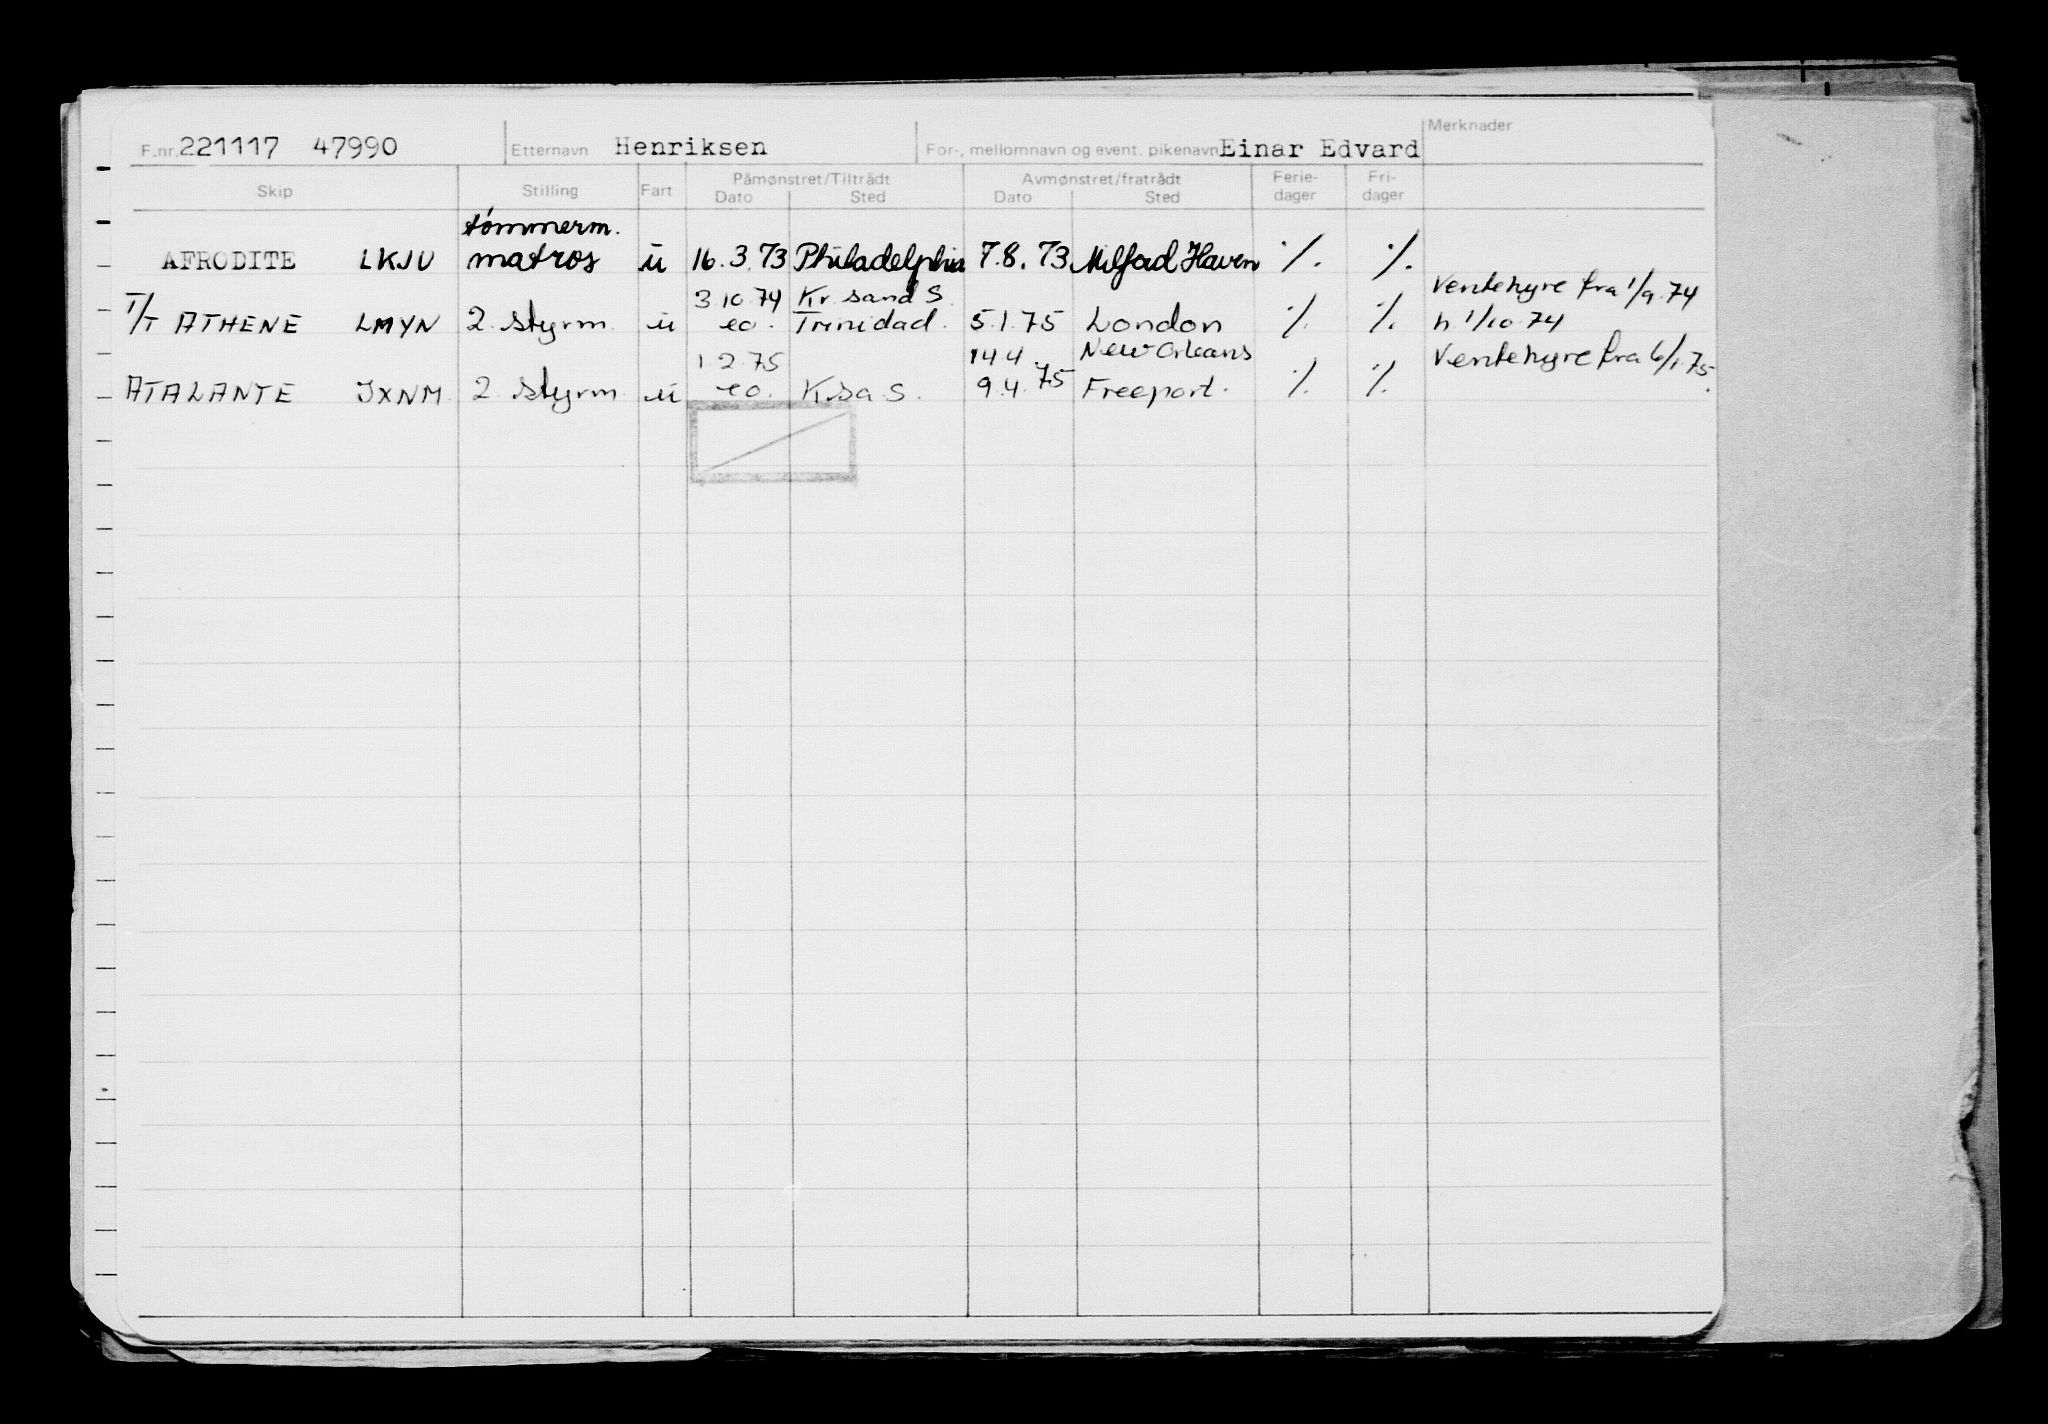 F.nr. 221117 47990 Etternavn Henriksen For-, mellomnavn og event. pikenavn Einar Edvard Merknader
Skip Stilling Fart Påmønstret/Tiltrådt Avmønstret/fratrådt Ferie- Fri-
Dato Sted Dato Sted dager dager
tömmerm.
AFRODITE LKJU matros ü 16.3.73 Philadelphia 7.8.73 Milford Haven ./. ./.
3 10 74 Kr. sand S. Ventehyre fra 1/9.74
T/T ATHENE LMYN 2. styrm. ü eo. Trinidad. 5.1.75 London ./. ./. h 1/10 74
1 2 75 14 4. New Orleans Ventehyre fra 6/1.75.
ATALANTE JXNM. 2 styrm. ü eo. K.sa. S. 9.4.75 Freeport. ./. ./.